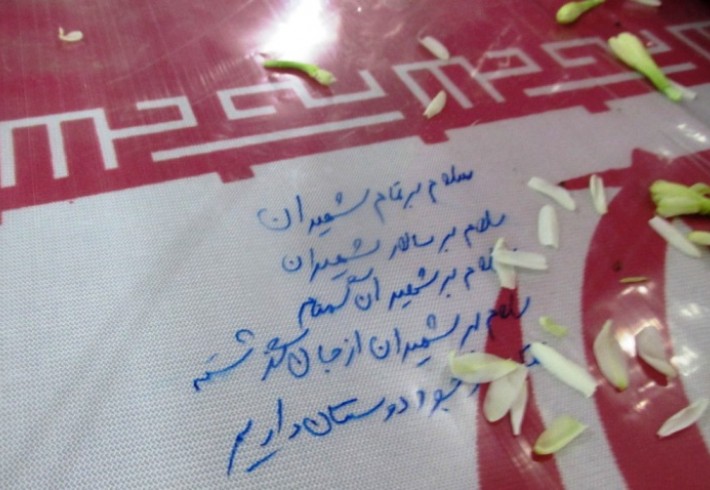 سلام بر تمام شهیدان
سلام بر سالار شهیدان
سلام بر شهیدان گمنام
سلام بر شهیدان از جان گذشته
دوستان داریم